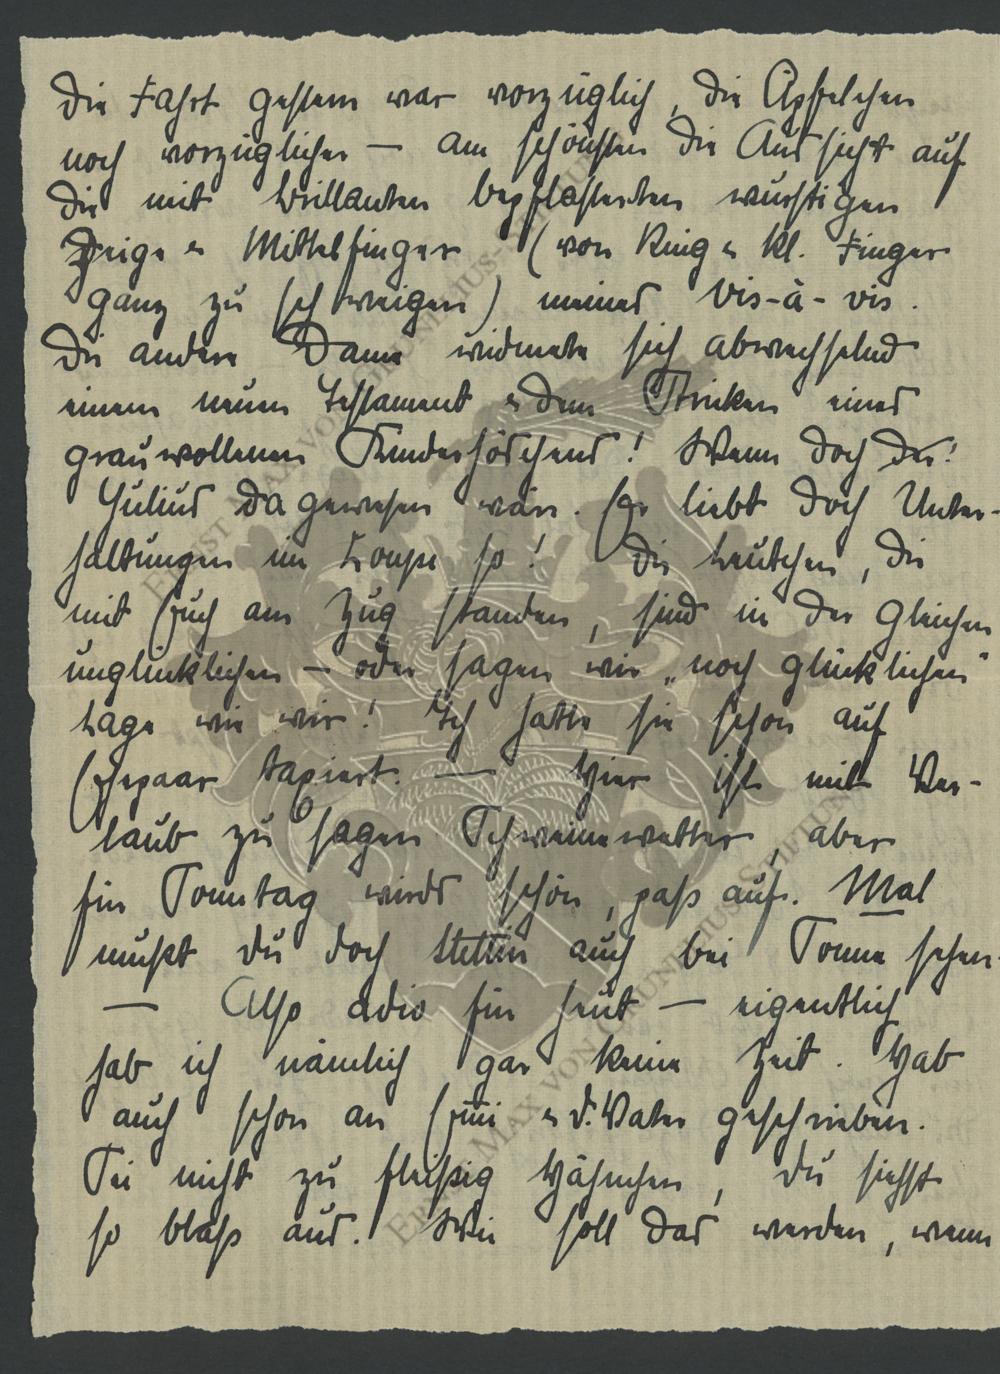 Die Fahrt gestern war vorzüglich, die Äpfelchen
noch vorzüglicher — am schönsten die Aussicht auf
die mit Brillanten bepflasterten wurstigen
Zeige u Mittelfinger (von Ring u kl. Finger
ganz zu schweigen) meines vis-à-vis.
Die andere Dame widmete sich abwechselnd
einem neuen Testament u dem Stricken eines
grauwollenen Kinderhöschens! Wenn doch der
Julius da gewesen wär. Er liebt doch Unter-
haltungen im Koupe so! Die Leutchen, die
mit Euch am Zug standen, sind in der gleichen
unglücklichen — oder sagen wir „noch glücklichen"
Lage wie wir! Ich hatte sie schon auf
Ehepaar taxiert. — Hier ist mit Ver-
laub zu sagen Schweinewetter, aber
für Sonntag wirds schön, pass auf. Mal
musst du doch Stettin auch bei Sonne sehen.
— Also adio für heut — eigentlich
hab ich nämlich gar keine Zeit. Hab
auch schon an u d. Vater geschrieben.
Sei nicht zu fleissig Hähnchen, du siehst
so blass aus. Wie soll das werden, wenn